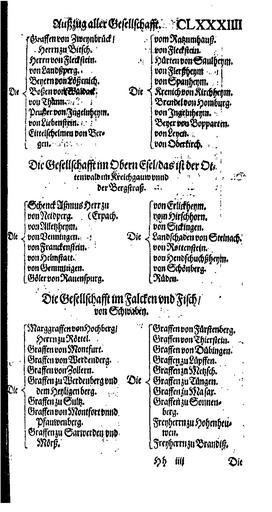 Außzug aller Gesellschafft. CLXXXIIII
Graffen von Zweynbrück/
Herrn zu Bitsch.
Herrn von Fleckstein.
von Landsperg.
Beyern von
Die Boßen von Waldeck
von Thann.
Preusser von Ingelnheym.
von Liebenstein.
von Ber-
gen.
vom Ratzumhauß.
von Fleckstein.
Hürten von Saulheym.
von Flerßheym
von Spanheym.
Die Krenich von Kirchheym.
Brendel von Homburg.
von Ingelnheym
Beyer von Boppartn.
von Leyen.
von Oberkirch.
Die Gesellschafft im Obern Esel/ das ist der Ot-
tenwald im Kreichgauw vnnd
der Bergstraß.
Schenck Asmus Herr zu
von Neidperg. Erpach.
von Alletzheym.
Die von Venningen.
von Franckenstein.
von Helmstatt
von Gemmingen.
Göler von Rauenspurg.
von Erlickheym.
vom Hirschhorn.
von Sickingen.
Die Landschaden von Steinach.
von Rottenstein.
von Hendschuchßheym.
von Schönberg.
Rüden.
Die Gesellschafft im Falcken vnd Fisch/
von Schwaben.
Marggraffen von Hochberg/
Herrn zu Röttel.
Graffen von Montfurt.
Graffen von Werdenberg.
Graffen von Zollern.
Die Graffen zu Werdenberg vnd
dem Heyligenberg.
Graffen zu Sultz.
Graffen von Montfort vnnd
Pfauwenberg.
Graffen zu Sarwerden vnd
Mörß.
Graffen von Fürstenberg.
Graffen von Thierstein.
Graffen von Tübingen.
Graffen zu Lüpffen.
Graffen zu Metzsch.
Die Graffen zu Tüngen.
Graffen zu Masax.
Graffen zu Sonnen-
berg.
Freyherrn zu Hohenheu-
wen.
Freyherrn zu Brandiß.
Hh iiij Die